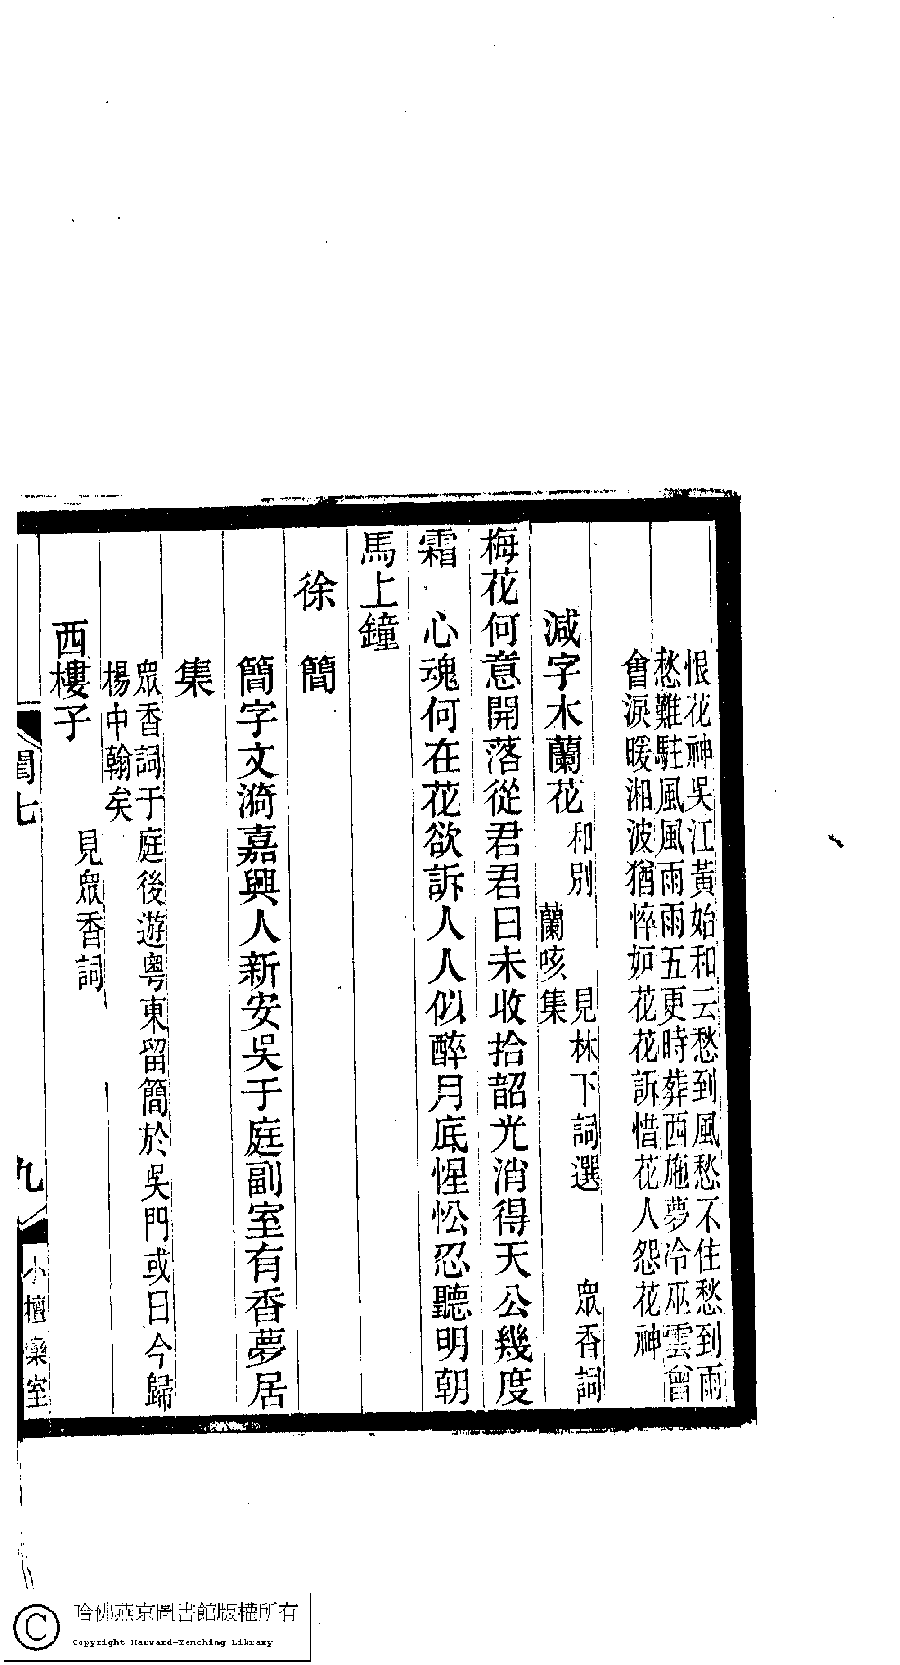 恨花神吳江黃始和云愁到風愁不住愁到雨
愁難駐風風雨雨五更時葬西施夢冷巫雲曾
會淚暖湘波猶悴如花花訴惜花人怨花神
減字木蘭花 和別 蘭咳集 見林下詞選 眾香詞
梅花何意開落從君君日未收拾韶光消得天公幾度
霜 心魂何在花欲訴人人似醉月底惺忪忍聽明朝
馬上鐘
徐 簡
簡字文漪嘉興人新安吳于庭副室有香夢居
集
眾香詞于庭後遊粵東留簡於吳門或日今歸
楊中翰矣
西樓子 見眾香詞
閨七
九
小檀欒室
哈佛燕京圖書館版權所有
Copyright Harvard-Yenching Library